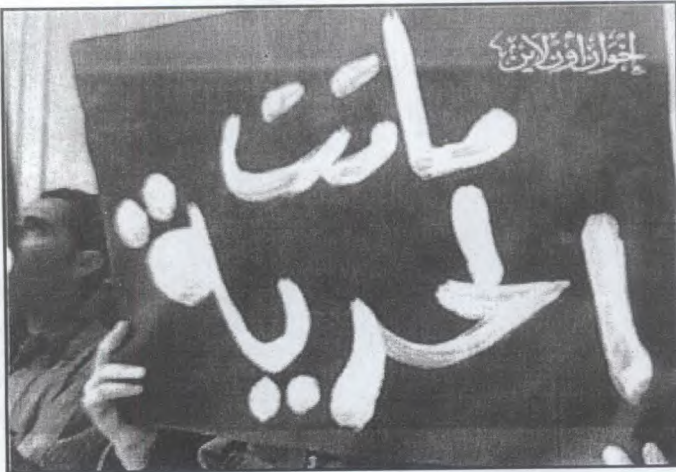 إخوان أون لاين
ماتت
الحرية